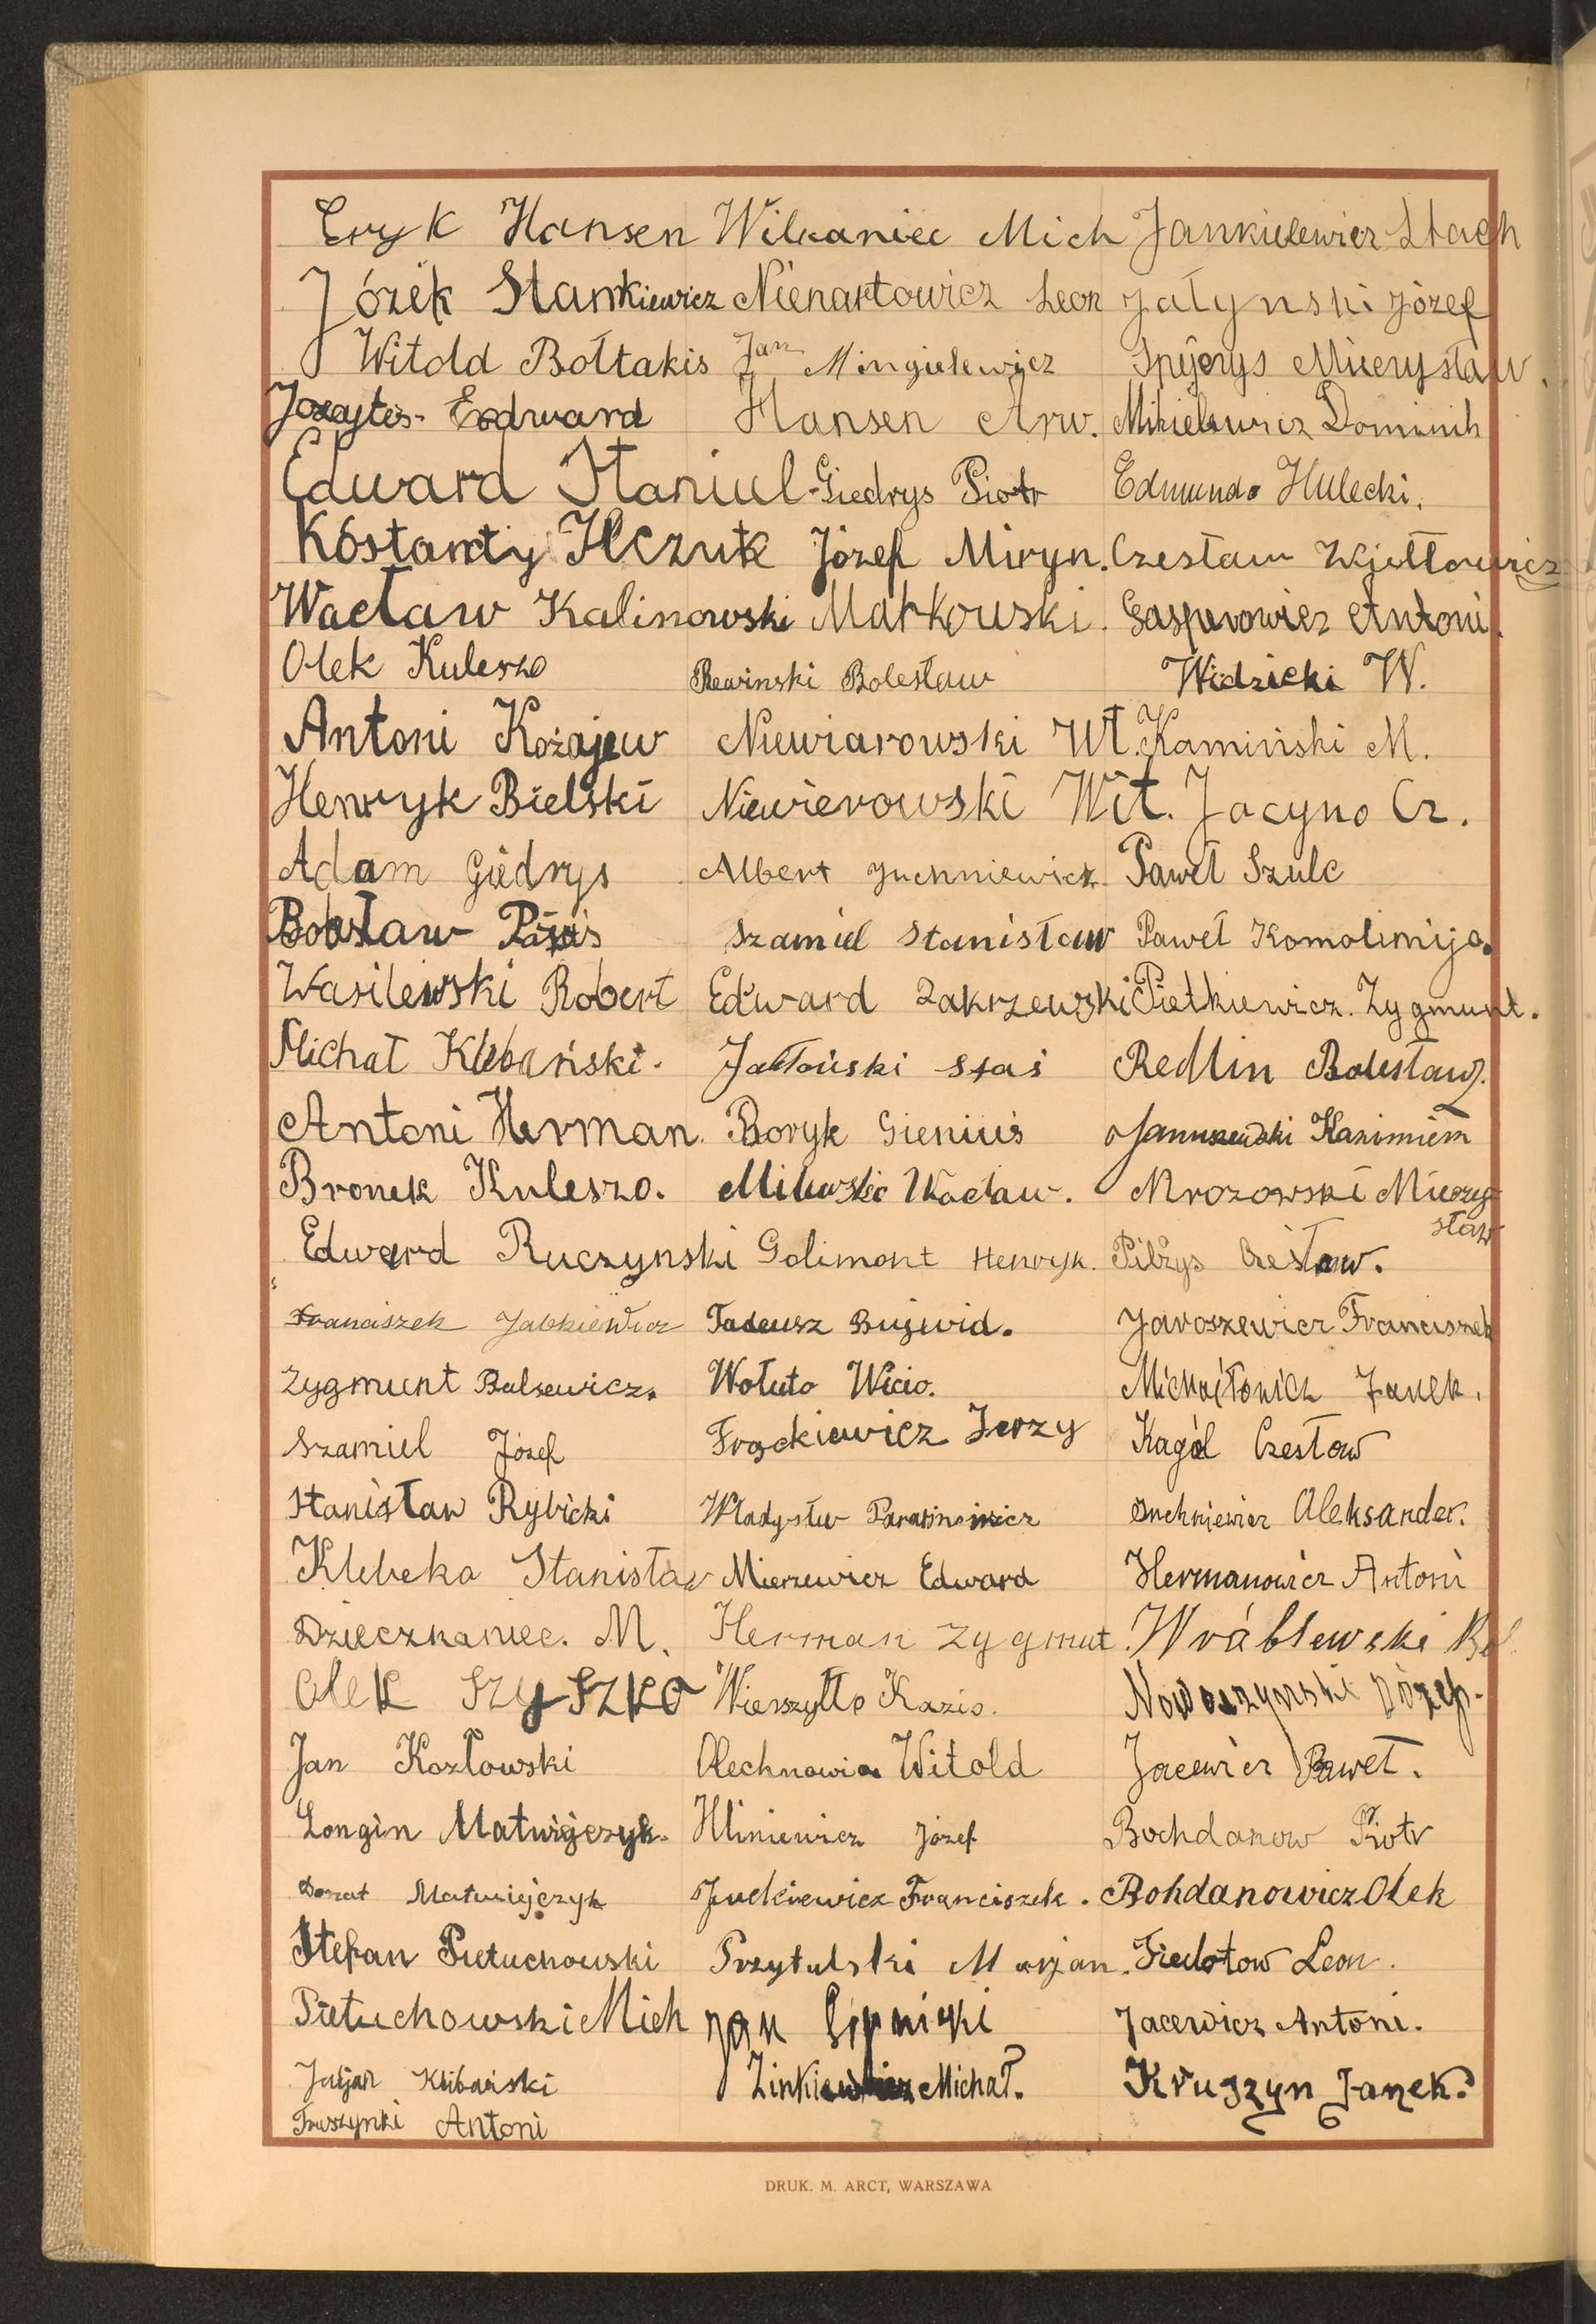 Eryk Hansen Wilkaniec Mich Jankielewicz Stach
Józek Stankiewicz Nienartowicz Leon Jałynski Józef
Witold Bołtakis Jan Mingielewicz Mieczysław.
Edward Hansen Arw. Mikielewicz Dominik
Edward Staniul Giedrys Piotr Edmund Hulecki.
Kóstanty Ilczuk Józef Miryn. Czesław
Wacław Kalinowski Markowski. Gasperowicz Antoni.
Olek Kuleszo Rewinski Bolesław Widzicki W.
Antoni Kożajew Niewiarowski Wł. Kamiński M.
Henryk Bielski Niewierowski Wit. Jacyno Cz.
Adam Giedrys Albert Juchniewicz. Paweł Szulc
Szamiel Stanisław Paweł Komolimijo.
Wasilewski Robert Edward Zakrzewski Pietkiewicz. Zygmunt.
Michał Klebański. Jabłoński Staś Redlin Bolesław.
Antoni Herman. Boryk Gieniuś Januszewski Kazimierz
Bronek Kuleszo. Milewski Wacław. Mrozowski Mieczy-
sław
Edward Ruczynski Golimont Henryk. Pilżys Czesław.
Franciszek Jabkiewicz Tadeusz Bujwid. Jaroszewicz Franciszek
Zygmunt Balsewicz. Wołuto Wicio. Michajłowicz Janek.
Szamiel Józef Frąckiewicz Jerzy Kagól Czesław
Stanisław Rybicki Władysław Juchniewicz Aleksander.
Klebeko Stanisław Mierzewicz Edward Hermanowicz Antoni
Dzieczkaniec. M. Herman Zygmut. Wráblewski Bol
Olek Szyszko Wierszyłło Kazio. Nowoszynski Józef.
Jan Kozłowski Olechnowicz Witold Jacewicz Paweł.
Longin Matwiejczyk. Hliniewicz Józef Bochdanow Piotr
Donat Matwiejczyk Juckiewicz Franciszek. Bohdanowicz Olek
Stefan Pietuchowski Przytulski Marjan. Fiedotow Leon.
Pietuchowski Mich Jan Lipnicki Jacewicz Antoni.
Juljan Klibański Zinkiewicz Michał. Kruszyn Janek.
Truszynki Antoni
DRUK. M. ARCT, WARSZAWA